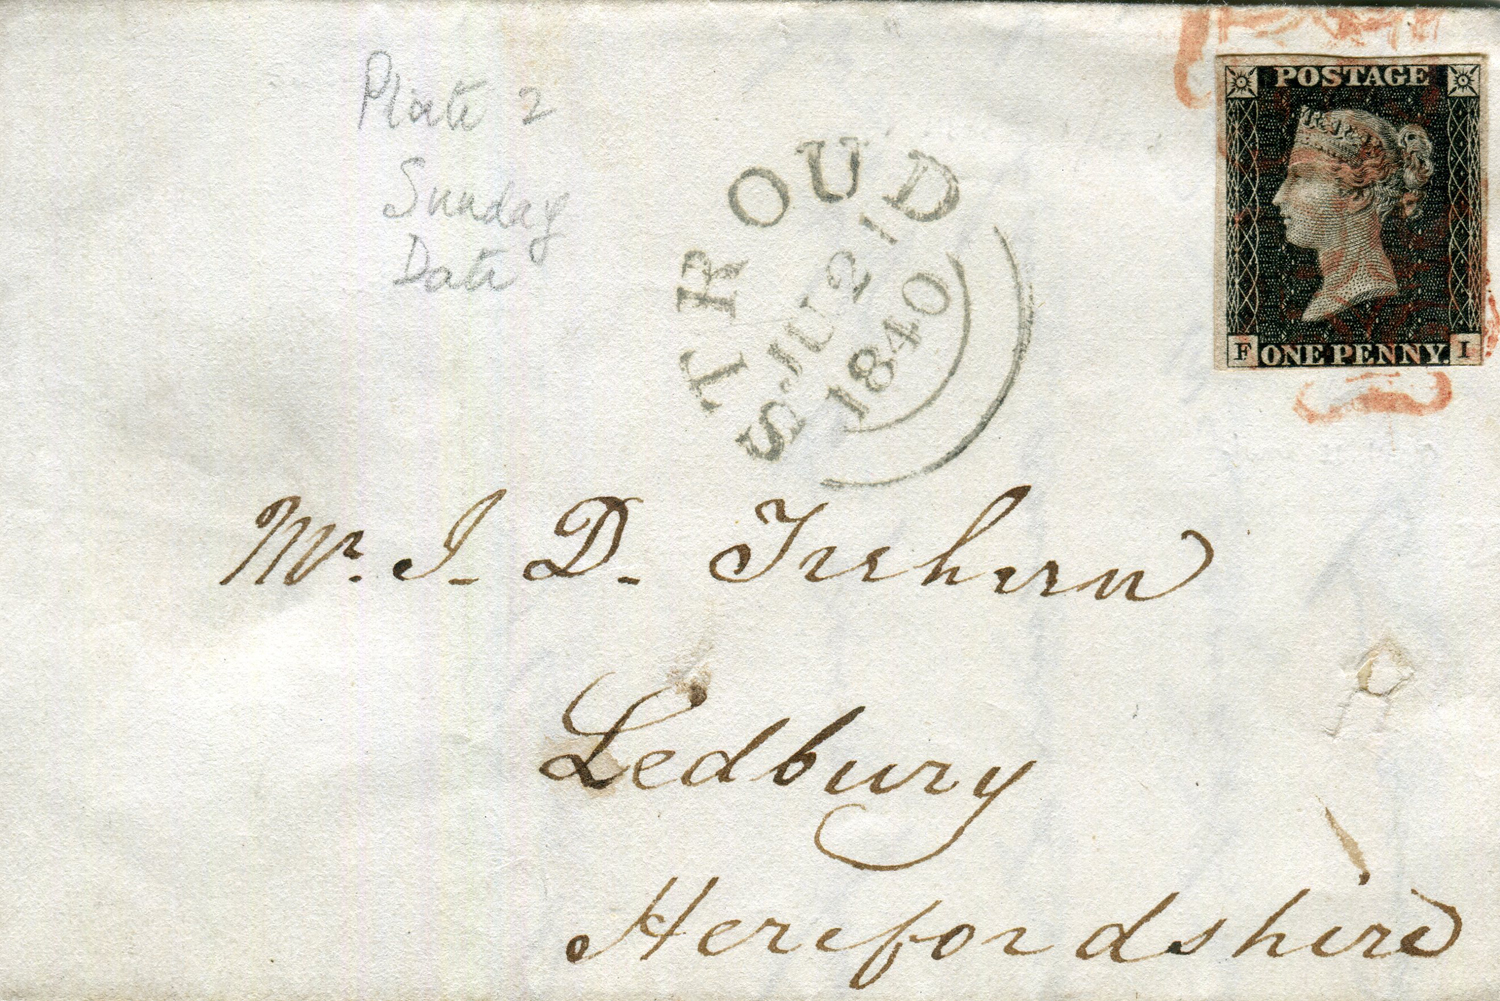 Plate 2
Sunday
Date
STROUD
JU 21
1840
POSTAGE
F ONE PENNY. I
Mr. J. D. Trehern
Ledbury
Herefordshire